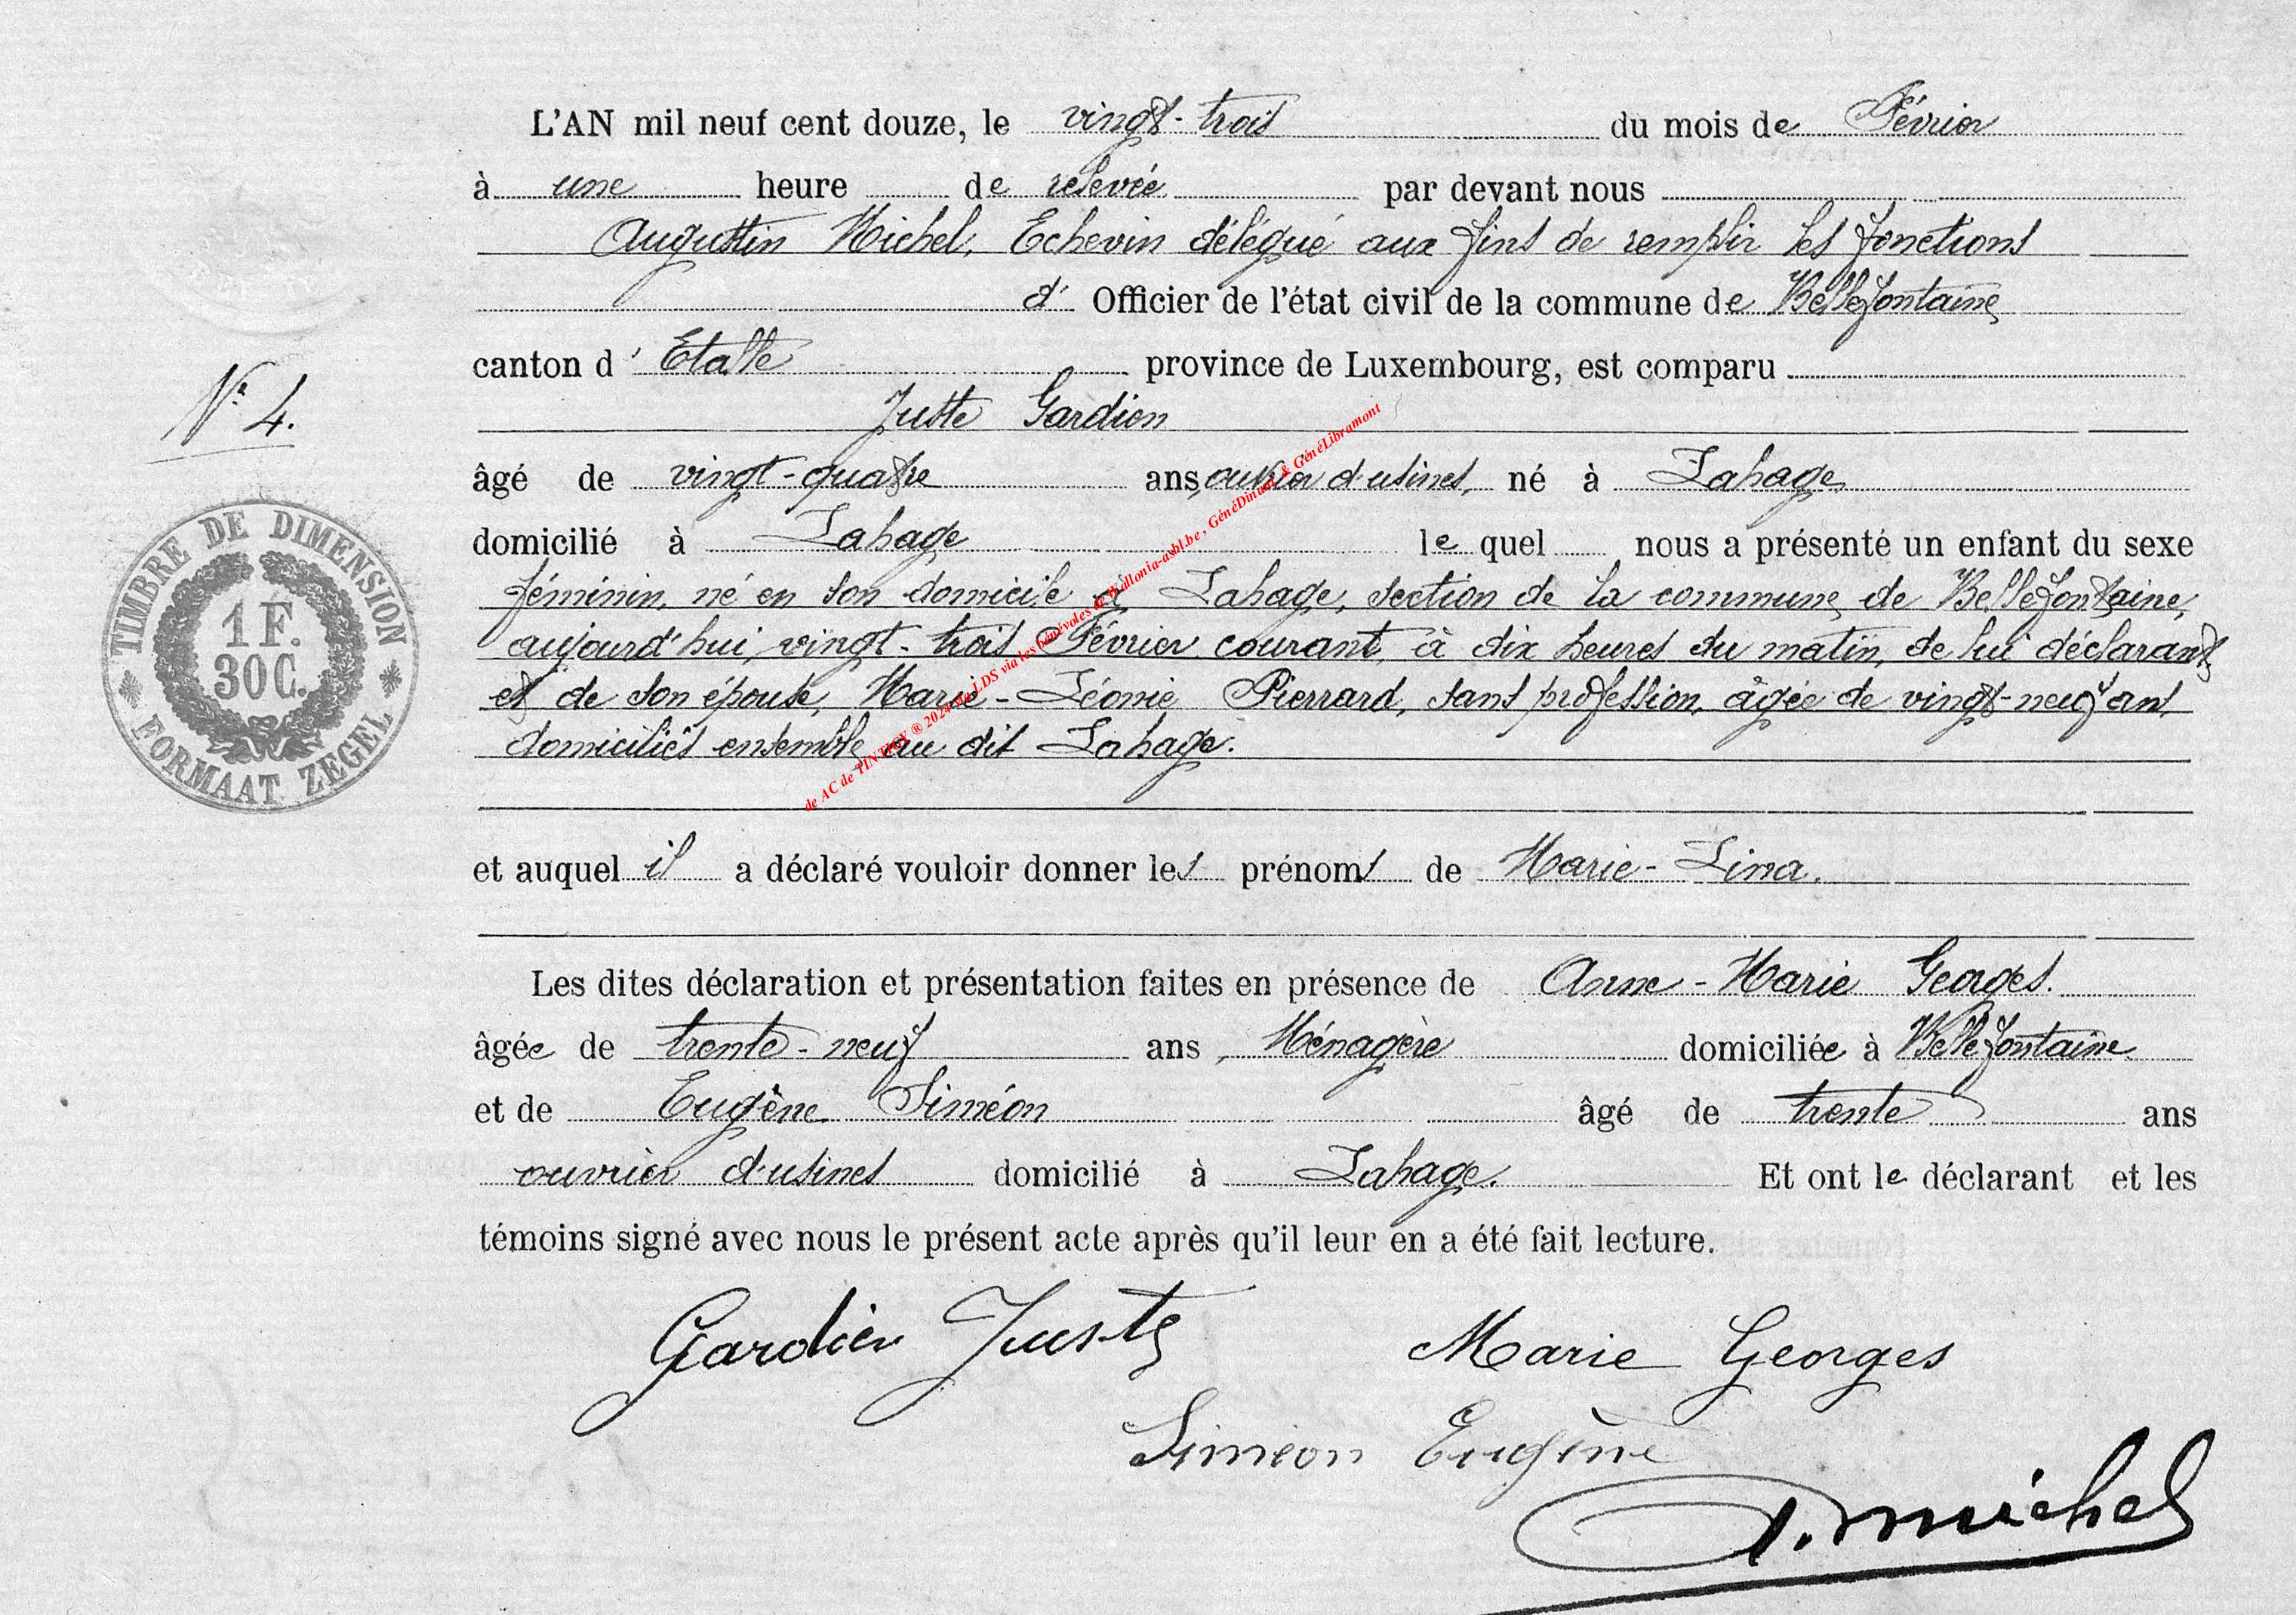 L'AN mil neuf cent douze, le vingt-trois du mois de Février
à une heure de relevée par devant nous
Augustin Michel, Echevin délégué aux fins de remplir les fonctions
d' Officier de l'état civil de la commune de Bellefontaine
canton d' Etalle province de Luxembourg, est comparu
N° 4.
Juste Gardien
âgé de vingt-quatre ans, ouvrier d'usines, né à Lahage
domicilié à Lahage lequel nous a présenté un enfant du sexe
féminin, né en son domicile à Lahage, section de la commune de Bellefontaine,
aujourd'hui, vingt-trois Février courant, à dix heures du matin, de lui déclarant
et de son épouse, Marie-Léonie Pierrard, sans profession, âgée de vingt-neuf ans,
domiciliés ensemble au dit Lahage.
TIMBRE DE DIMENSION
1 F.
30 C.
FORMAAT ZEGEL
de AC de TINTIGNY ® 2024 via LDS via les bénévoles de Wallonia-asbl.be, GénéDinant & GénéLibramont
et auquel il a déclaré vouloir donner les prénoms de Marie-Lina.
Les dites déclaration et présentation faites en présence de Anne-Marie Georges.
âgée de trente-neuf ans, Ménagère domiciliée à Bellefontaine
et de Eugène Siméon âgé de trente ans
ouvrier d'usines domicilié à Lahage. Et ont le déclarant et les
témoins signé avec nous le présent acte après qu'il leur en a été fait lecture.
Gardien Juste Marie Georges
Siméon Eugène
A. Michel